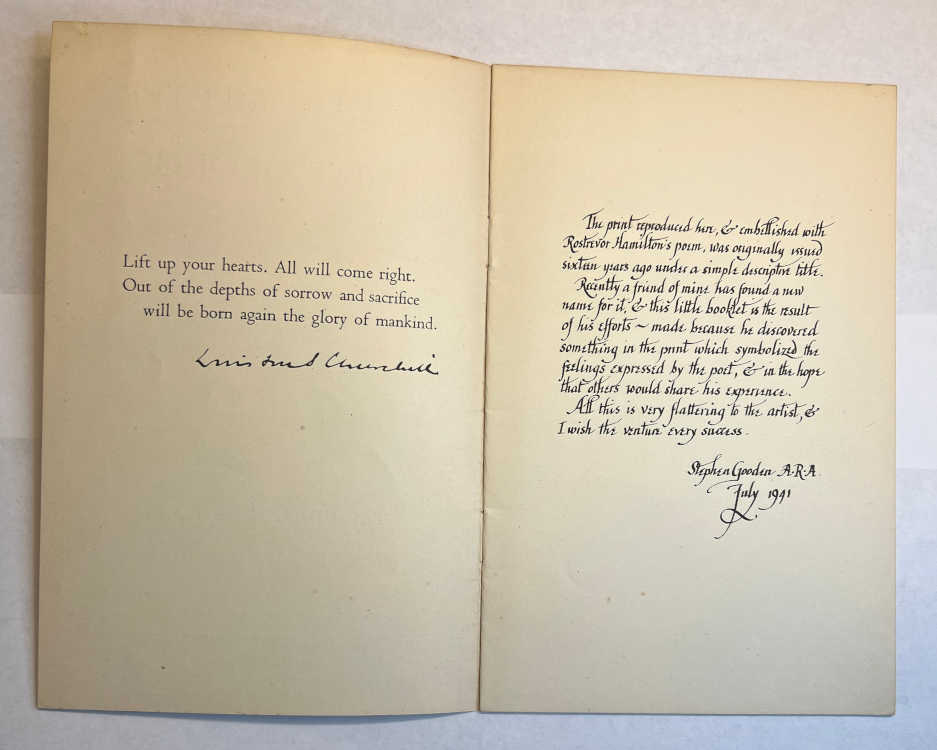 Lift up your hearts. All will come right.
Out of the depths of sorrow and sacrifice
will be born again the glory of mankind.
Winston S Churchill
The print reproduced here, & embellished with
Rostrevor Hamilton's poem, was originally issued
sixteen years ago under a simple descriptive title.
Recently a friend of mine has found a new
name for it, & this little booklet is the result
of his efforts ~ made because he discovered
something in the print which symbolized the
feelings expressed by the poet, & in the hope
that others would share his experience.
All this is very flattering to the artist, &
I wish the venture every success.
Stephen Gooden A.R.A.
July 1941